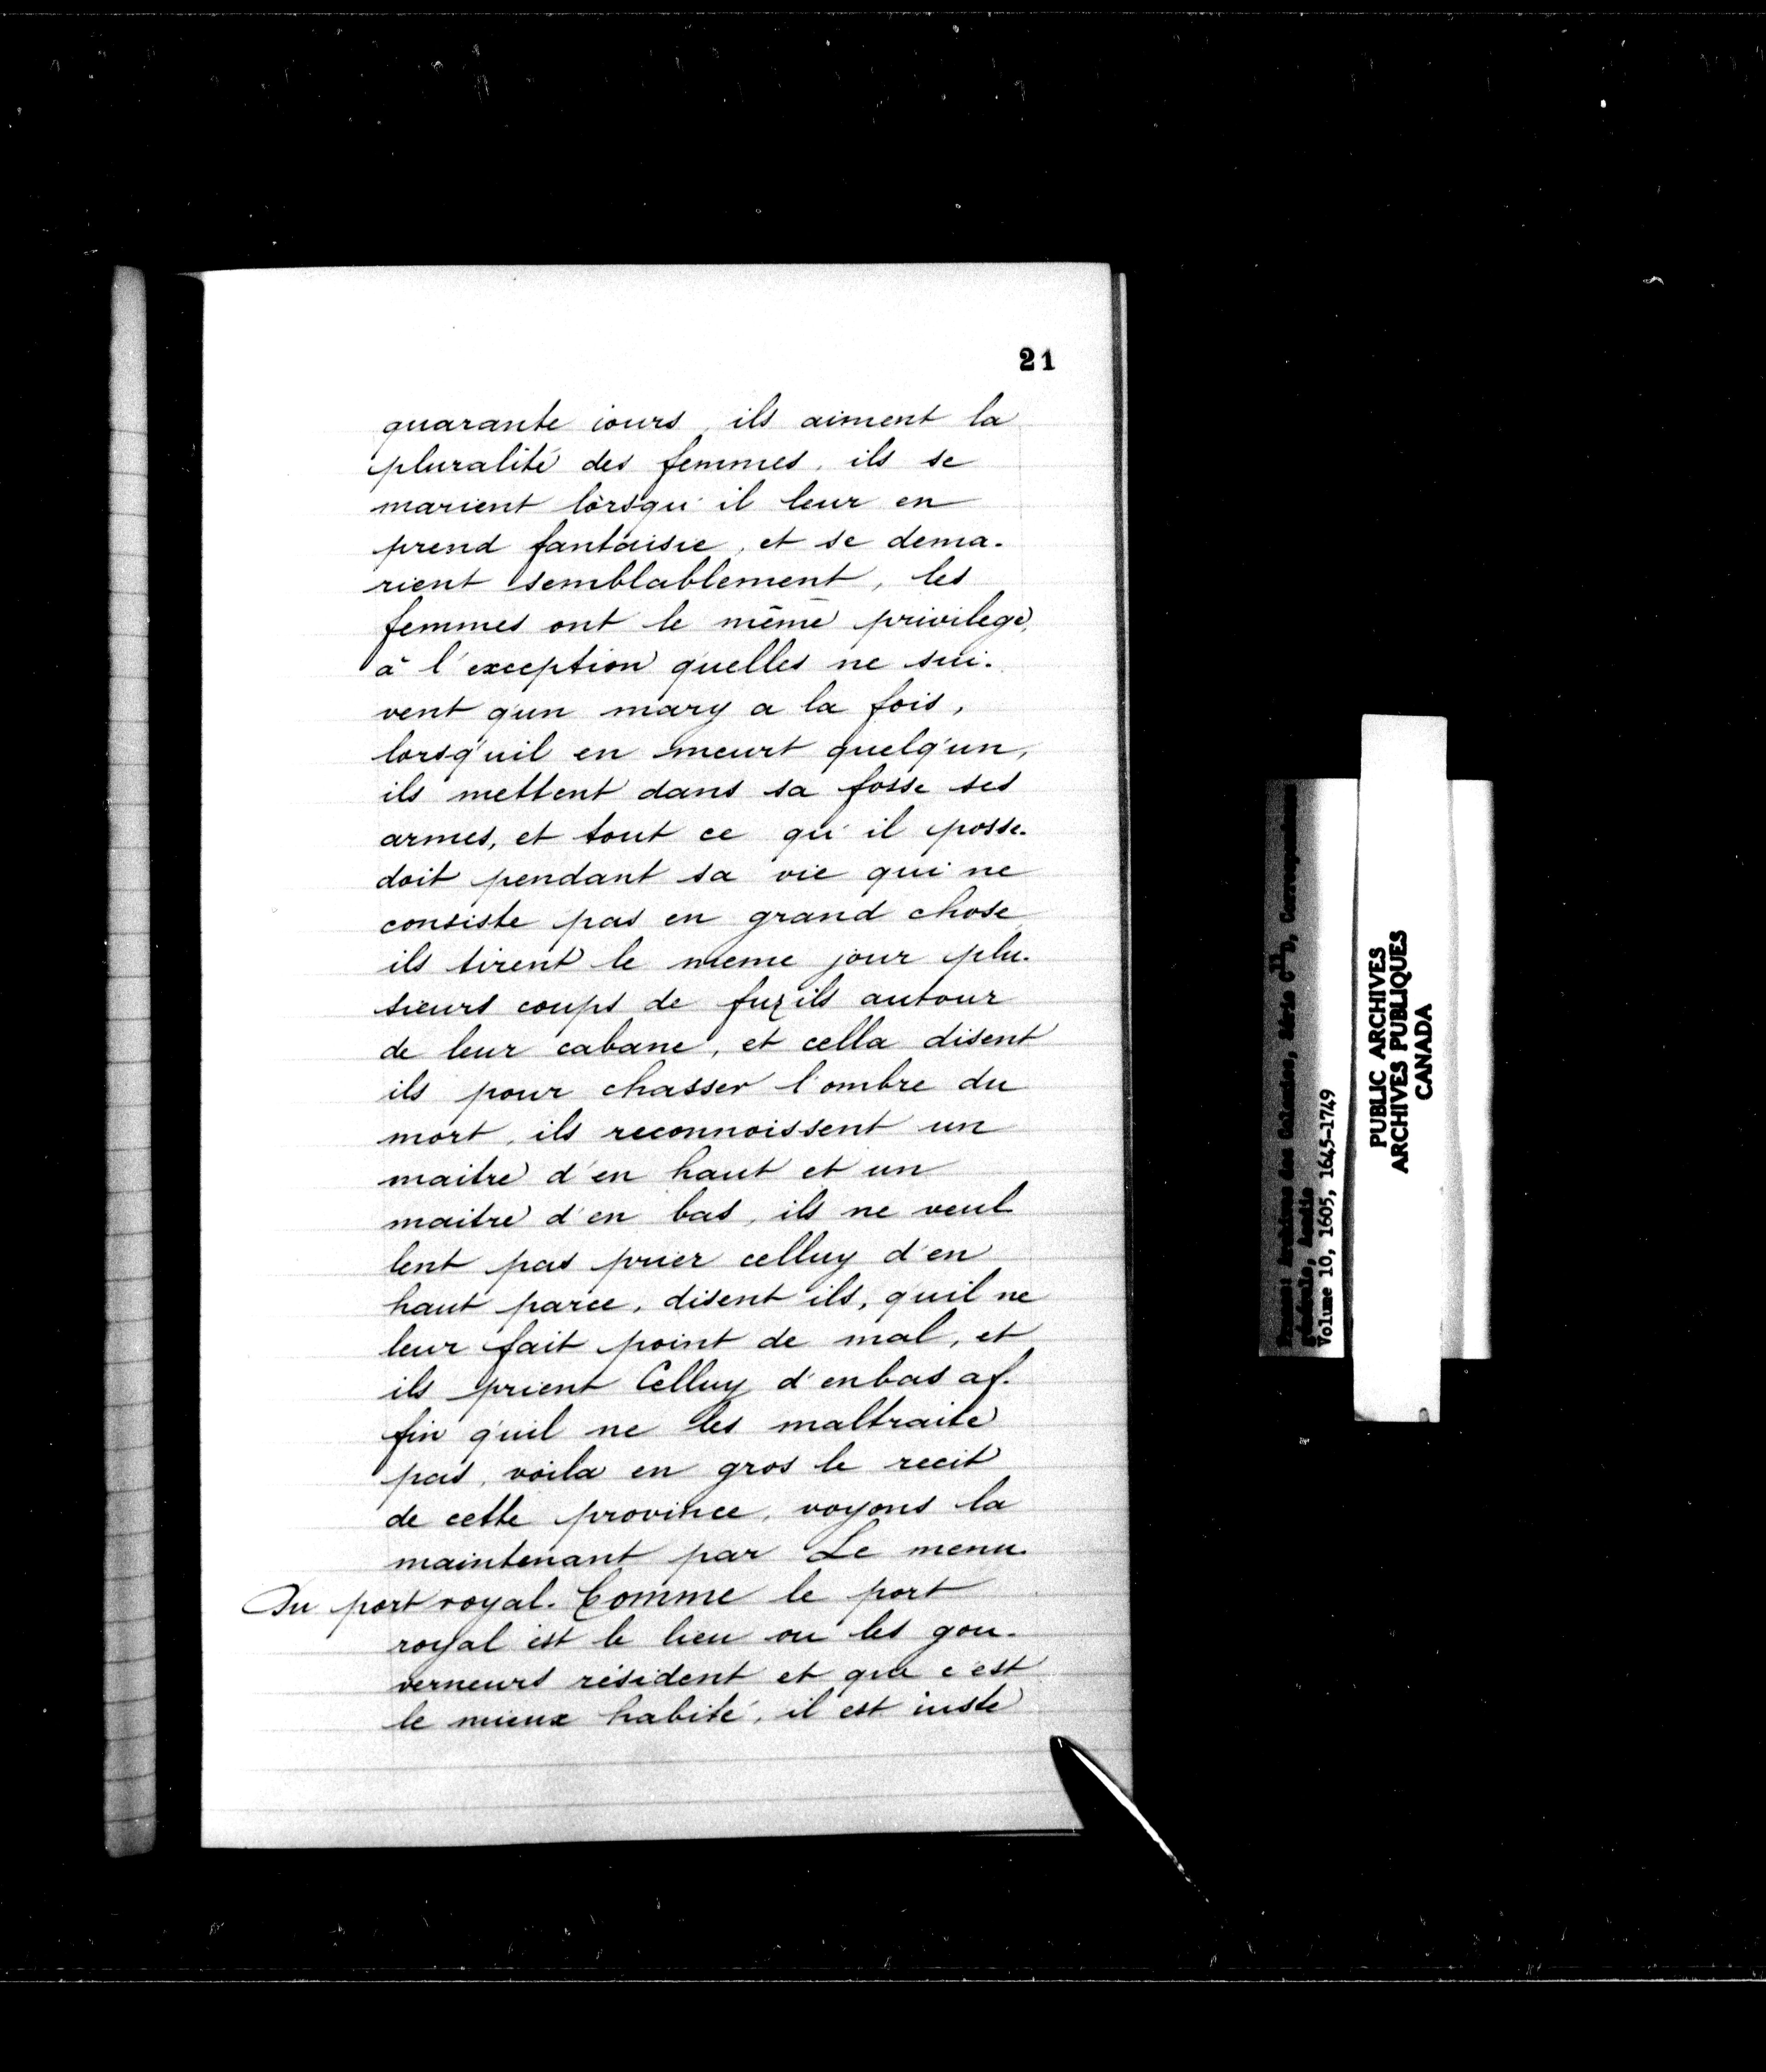 21
quarante iours, ils aiment la
pluralité des femmes, ils se
marient lorsqu'il leur en
prend fantaisie, et se dema-
rient semblablement, les
femmes ont le même privilege,
à l'exception quelles ne sui-
vent q'un mary a la fois,
lorsq'uil en meurt quelq'un,
ils mettent dans sa fosse ses
armes, et tout ce qu'il posse-
doit pendant sa vie qui ne
consiste pas en grand chose
ils tirent le meme jour plu-
sieurs coups de fuzils autour
de leur cabane, et cella disent
ils pour chasser l'ombre du
mort, ils reconnoissent un
maitre d'en haut et un
maitre d'en bas, ils ne veul
lent pas prier celluy d'en
haut parce, disent ils, q'uil ne
leur fait point de mal, et
ils prient Celluy d'enbas af-
fin q'uil ne les maltraite
pas, voila en gros le recit
de cette province, voyons la
maintenant par Le menu.
Du port royal. Comme le port
royal est le lieu ou les gou-
verneurs résident et que c'est
le mieux habité, il est iuste
France: Archives des Colonies, Série C11D, Correspondance
générale, Acadie
Volume 10, 1605, 1645-1749
PUBLIC ARCHIVES
ARCHIVES PUBLIQUES
CANADA